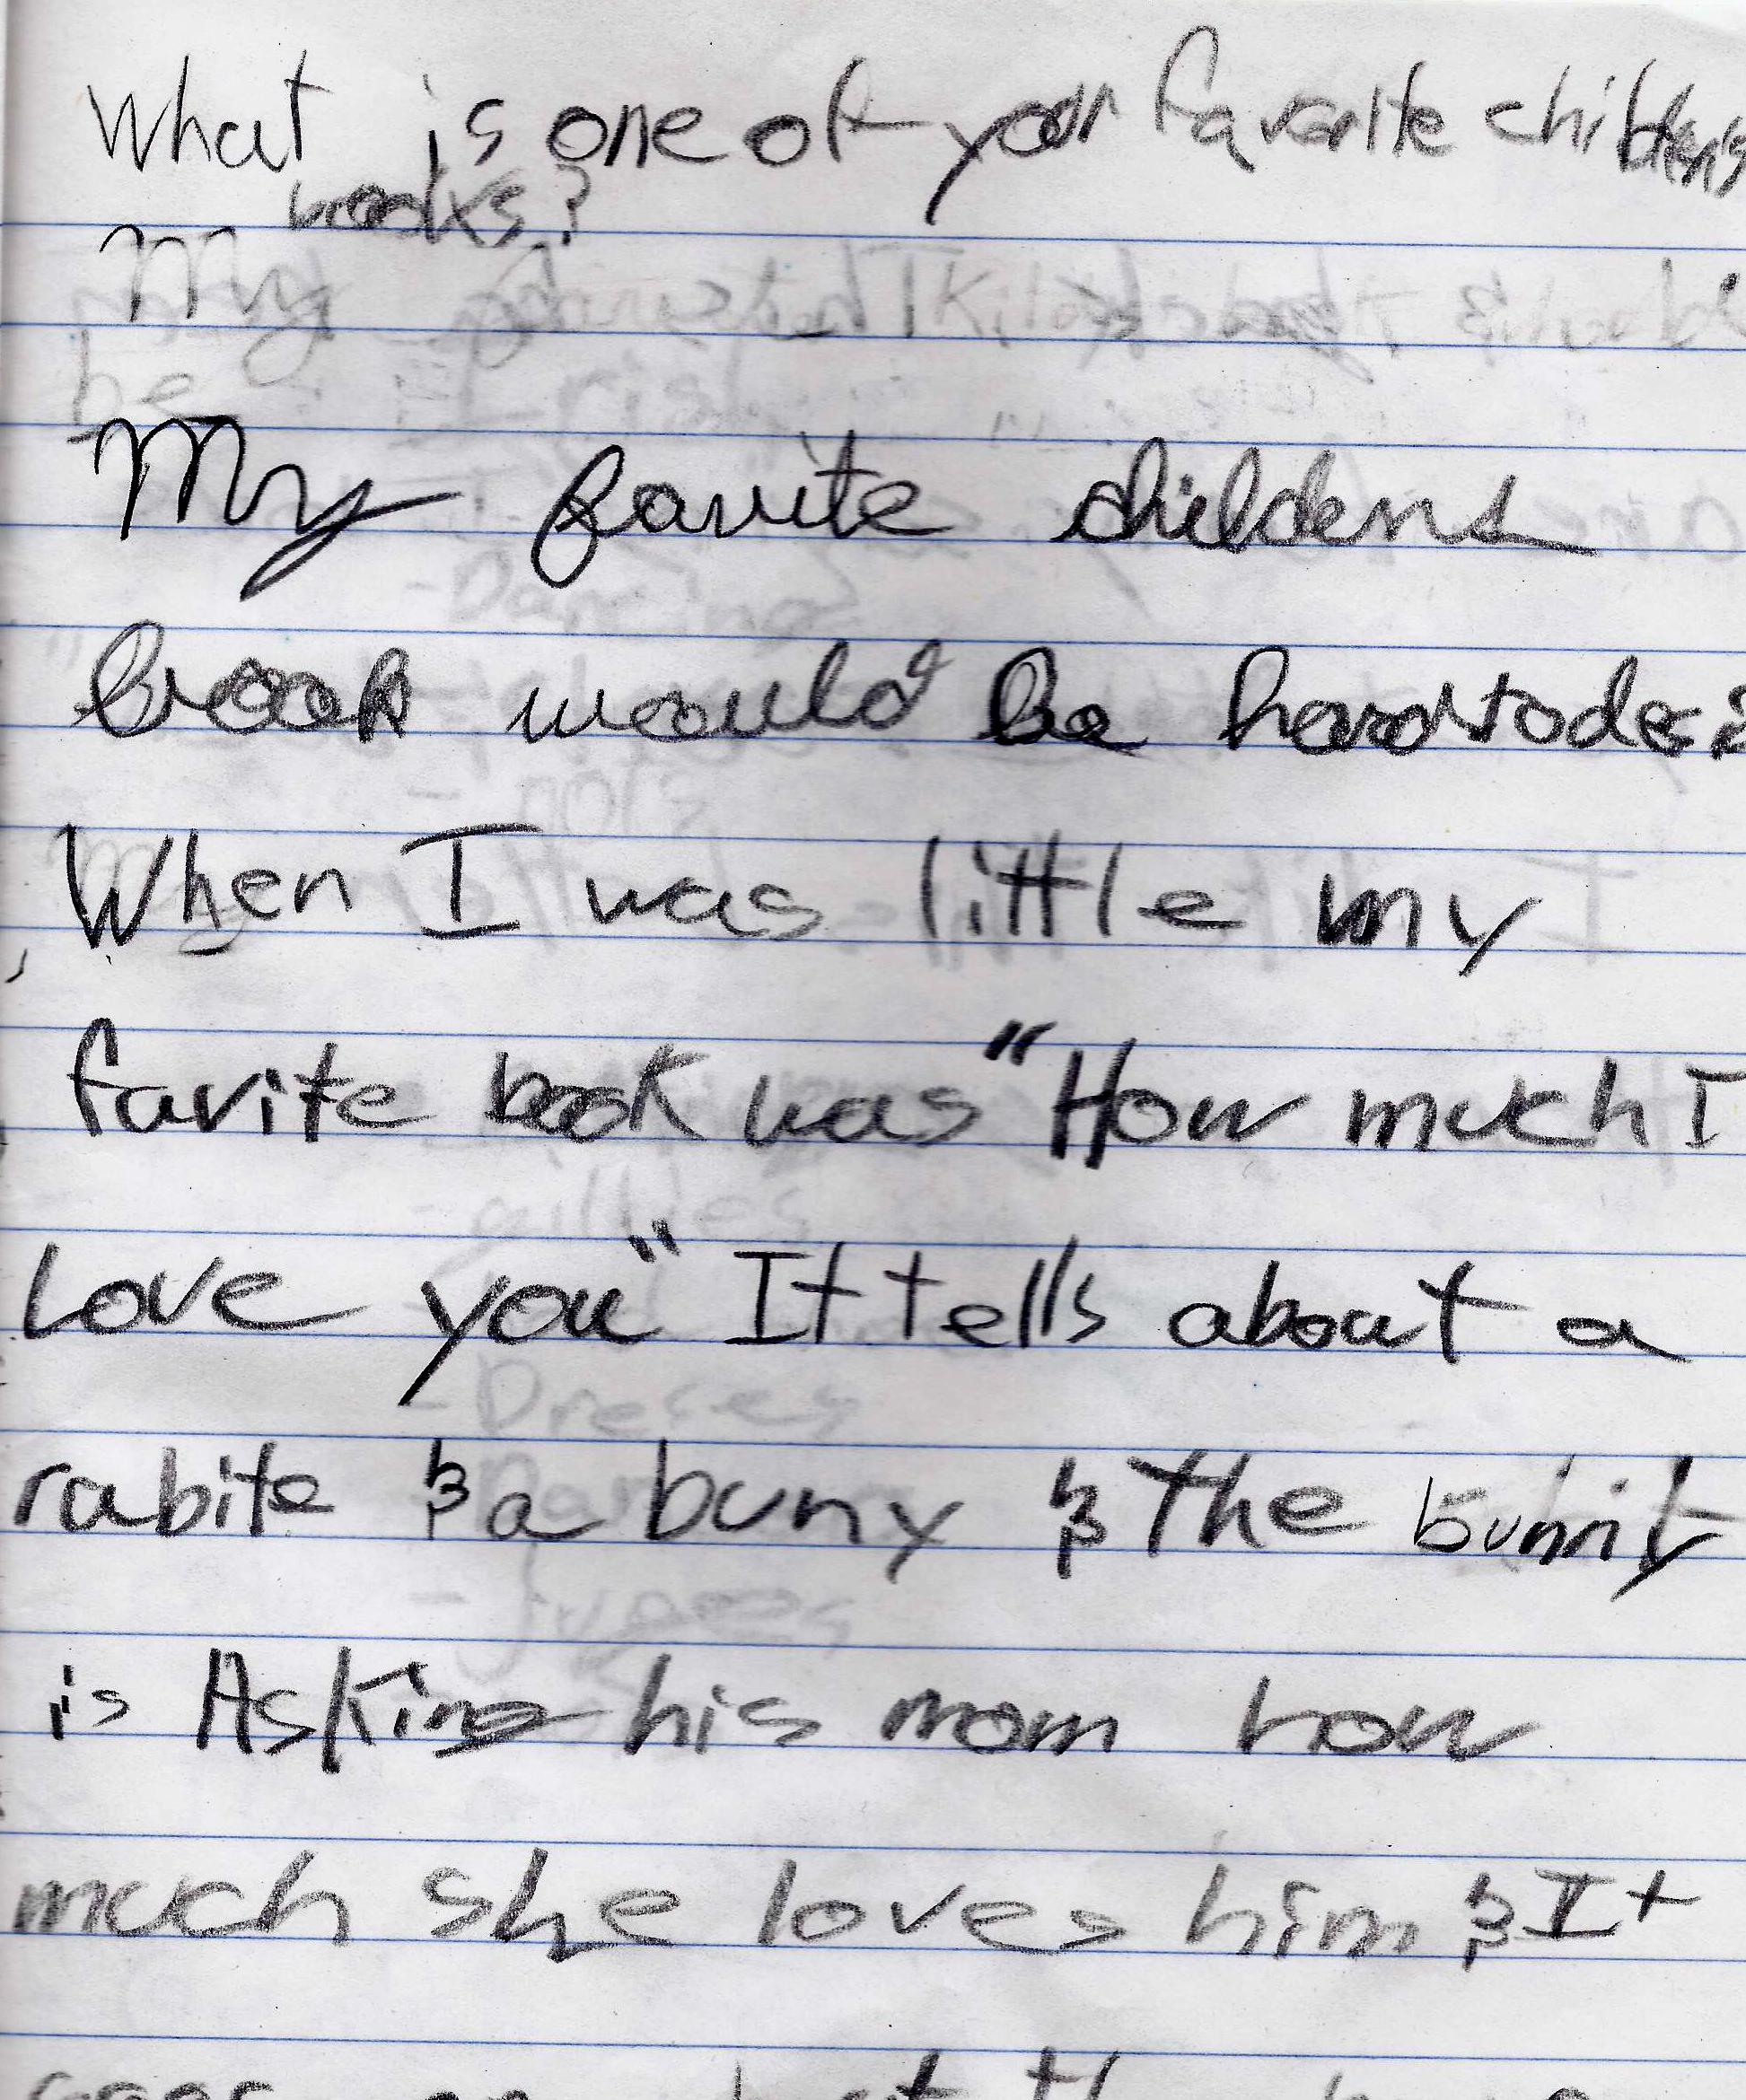 What is one of your favorite children's
books?
My
be
My favite childens
book would be hard to
When I was little my
favite book was "How much I
Love you" It tells about a
rabite & a buny & the bunny
is Asking his mom how
much she loves him & It